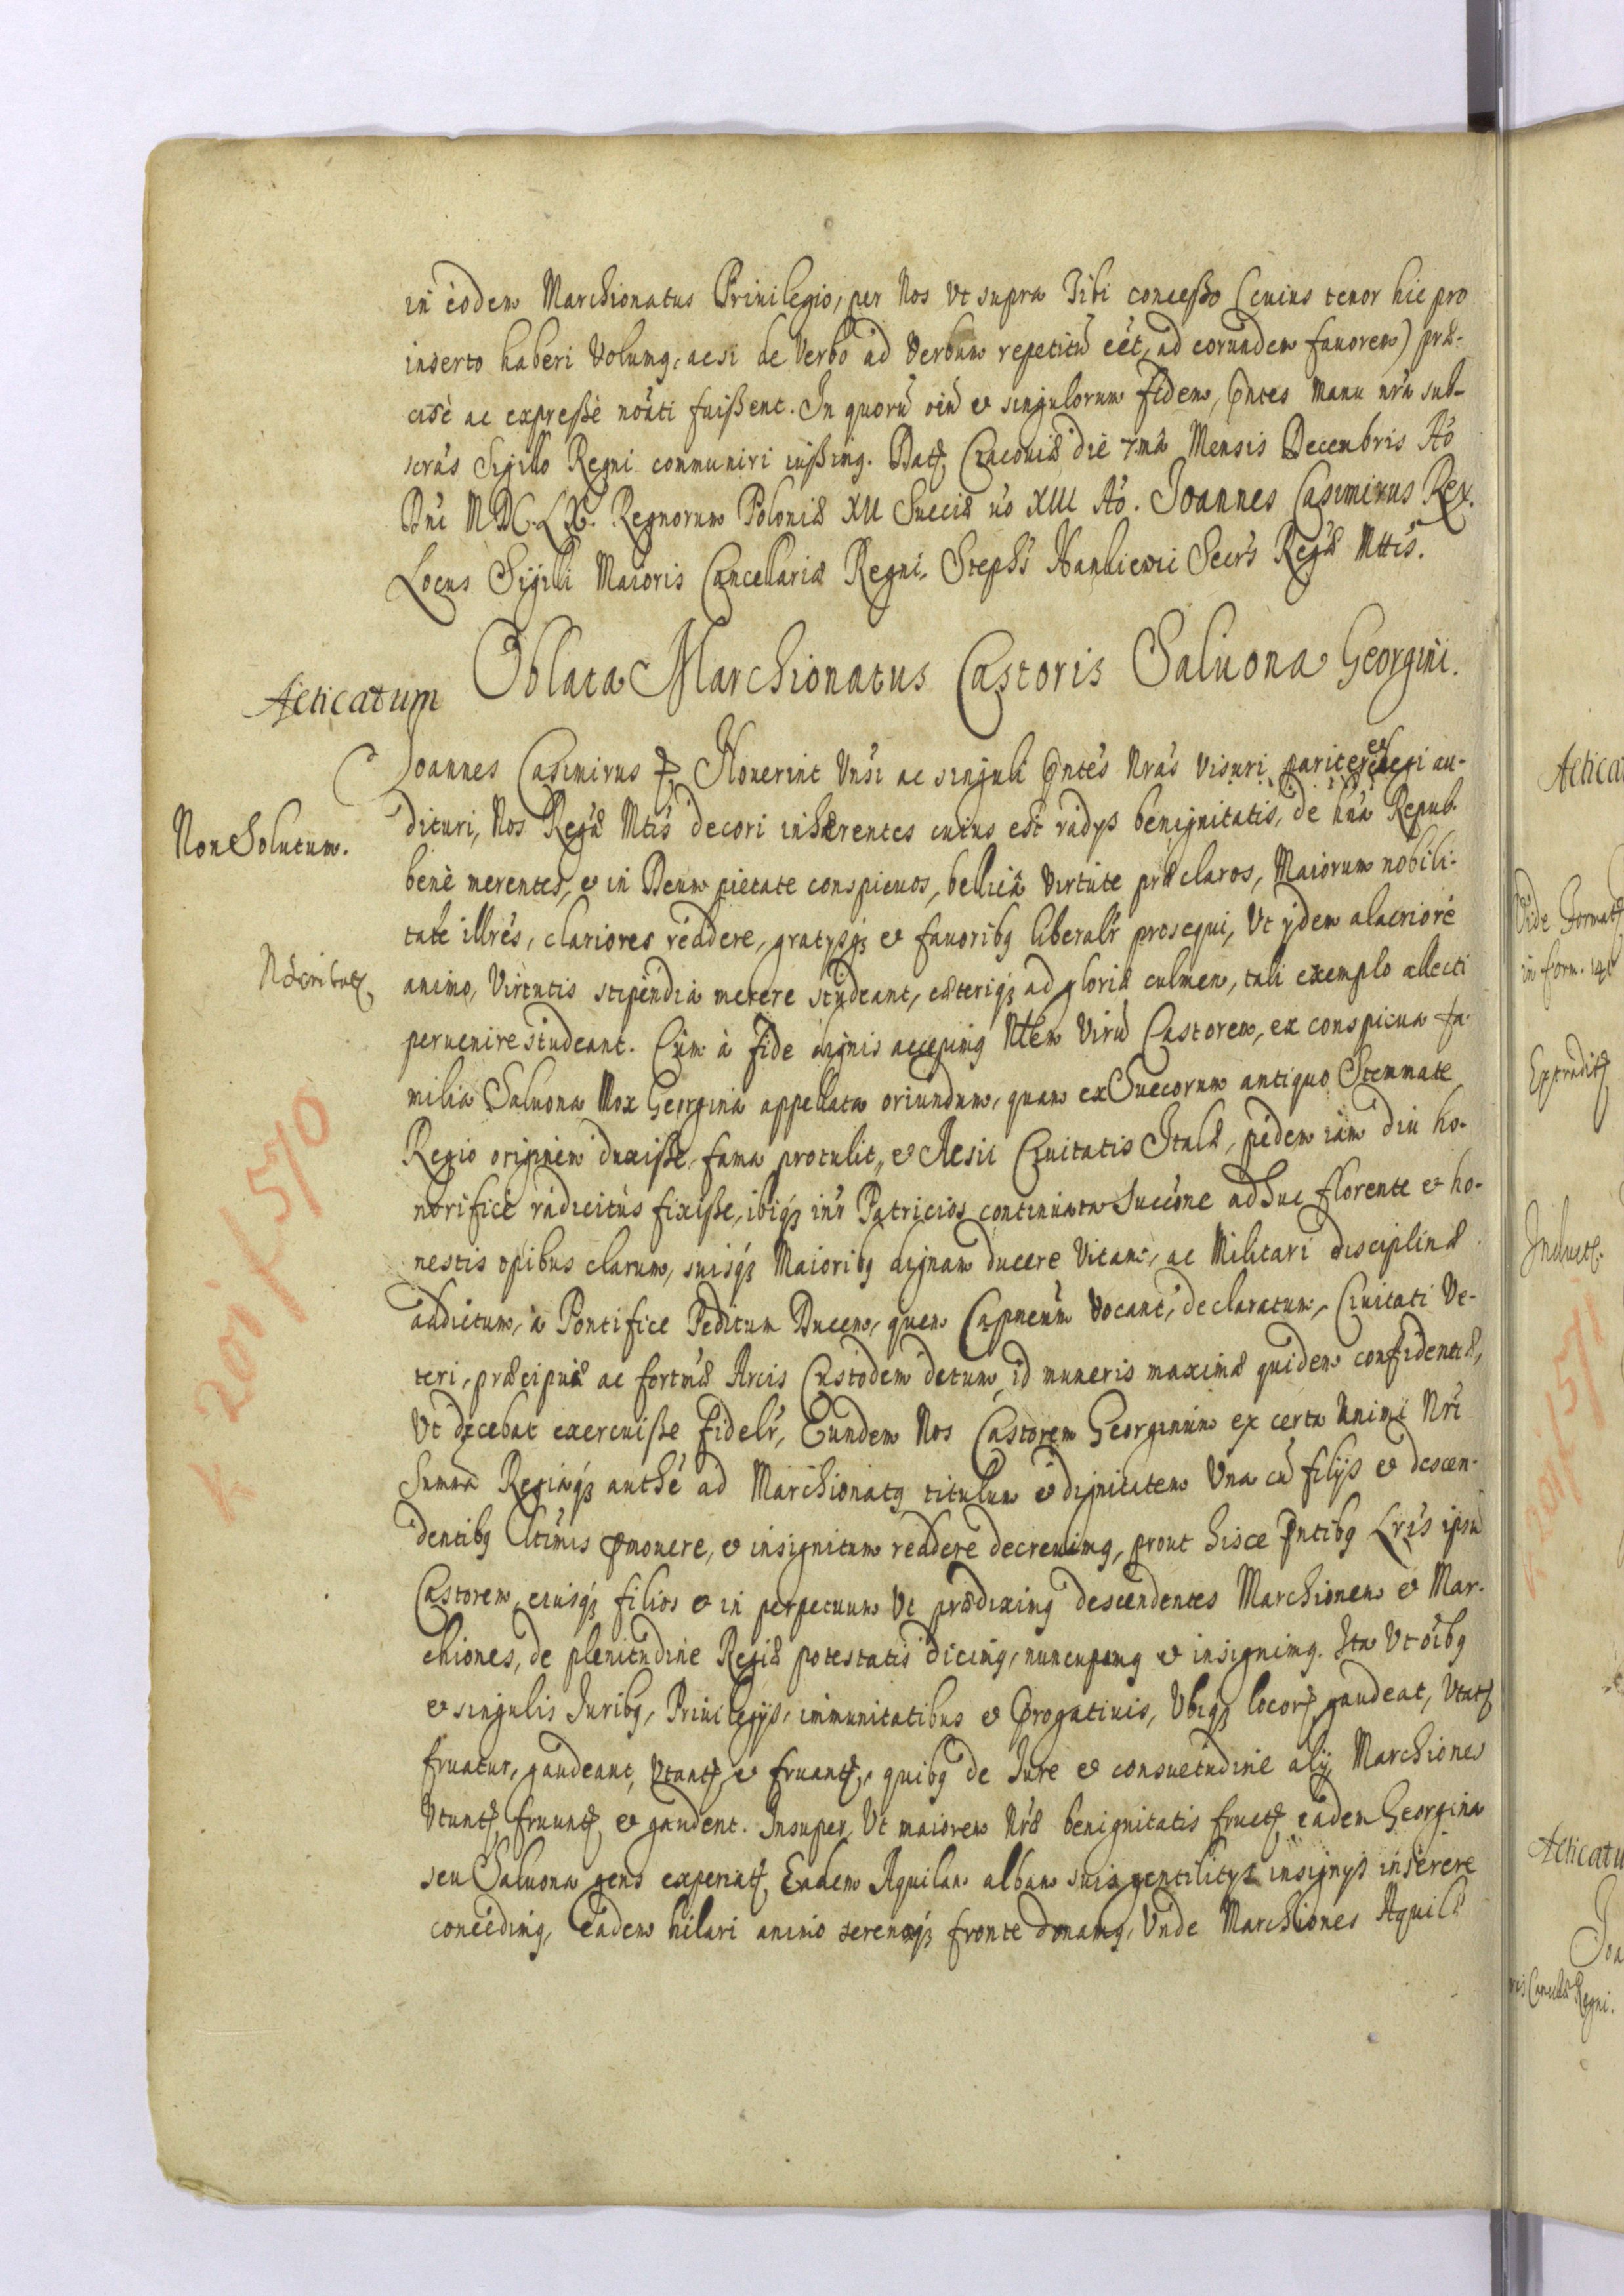 in eodem Marchionatus Priuilegio, per Nos Vt supra Sibi concesso (cuius tenor hic pro
inserto haberi Volumꝯ, acsi de Verbo ad Verbum repetitũ eet, ad eorundem fauorem) præ-
cisè ac expressè noati fuissent. In quorũ oiũ et singulorum fidem, pntes Manu nra sub-
scras Sigillo Regni communiri iussimꝯ. Datꝭ Cracouiæ die 7.ma Mensis Decembris Ao
Dni M.DC.LX. Regnorum Poloniæ XII Sueciæ uo XIII Ao. Joannes Casimirus Rex.
Locus Sigilli Maioris Cancellariæ Regni. Stephs Hankiewii Secrs Regæ Mttis.
Acticatum
Oblata Marchionatus Castoris Saluona Georgini.
Joannes Casimirus ꝭ Nouerint Vnsi ac singuli pntes Nras Visuri pariter et legi au-
Non Solutum.
dituri, Nos Regæ Mtis decori inhærentes cuius est radys benignitatis, de hna Repub.
benè merentes, et in Deum pietate conspicuos, bellicâ Virtute præclaros, Maiorum nobili-
tate illres, clariores reddere, gratysqꝫ et fauoribꝯ liberalr prosequi, Vt ydem alacriore
animo, Virtutis stipendia merere studeant, cæteriqꝫ ad gloriæ culmen, tali exemplo allecti
peruenire studeant. Cùm à fide dignis accepimꝯ Nblem Virũ Castorem, ex conspicua fa-
milia Saluona Mox Georgina appellata oriundum, quam ex Suecorum antiquo Stemmate
Regio originem duxisse, fama protulit, et Aesii Ciuitatis Italæ, pedem iam diu ho-
k 201 f 570
norificè radicitùs fixisse, ibiqꝫ intr Patricios continuata Succone adhuc florente et ho-
nestis opibus clarum, suisqꝫ Maioribꝯ dignam ducere Vitam, ac Militari disciplinæ
addictum, à Pontifice Peditum Ducem, quem Capneum Vocant, declaratum, Ciuitati Ve-
teri, præcipuæ ac fortmæ Arcis Custodem detum, id muneris maximæ quidem confidentiæ,
Vt decebat exercuisse fidelr, Eundem Nos Castorem Georginum ex certa Animi Nri
Summa Regiaqꝫ authe ad Marchionatꝯ titulum et dignitatem Vna cũ filijs et descen-
dentibꝯ ltimis promouere, et insignitum reddere decreuimꝯ, prout hisce pntibꝯ Lris ipsũ
Castorem, eiusqꝫ filios et in perpetuum Vt prædiximꝯ descendentes Marchionem et Mar-
chiones, de plenitudine Regiæ potestatis dicimꝯ, nuncupamꝯ et insignimꝯ. Ita Vt oibꝯ
et singulis Juribꝯ, Priuilegijs, immunitatibus et Prrogatiuis, Vbiqꝫ locorꝭ gaudeat, Vtatꝭ
fruatur, gaudeant, Vtantꝭ et fruantꝭ, quibꝯ de Jure et consuetudine alij Marchiones
Vtuntꝭ, fruuntꝭ et gaudent. Insuper, Vt maiorem Nræ benignitatis fructꝭ eadem Georgina
seu Saluona gens experiatꝭ, Eadem Aquilam albam suis gentilitys insignys inserere
concedimꝯ, Eadem hilari animo serenaqꝫ fronte donamꝯ, Vnde Marchiones Aquilæ
Acticat
Vide Formatꝭ
Extraditꝭ
k 201 f 571
Acticatu
Joa
Regni.